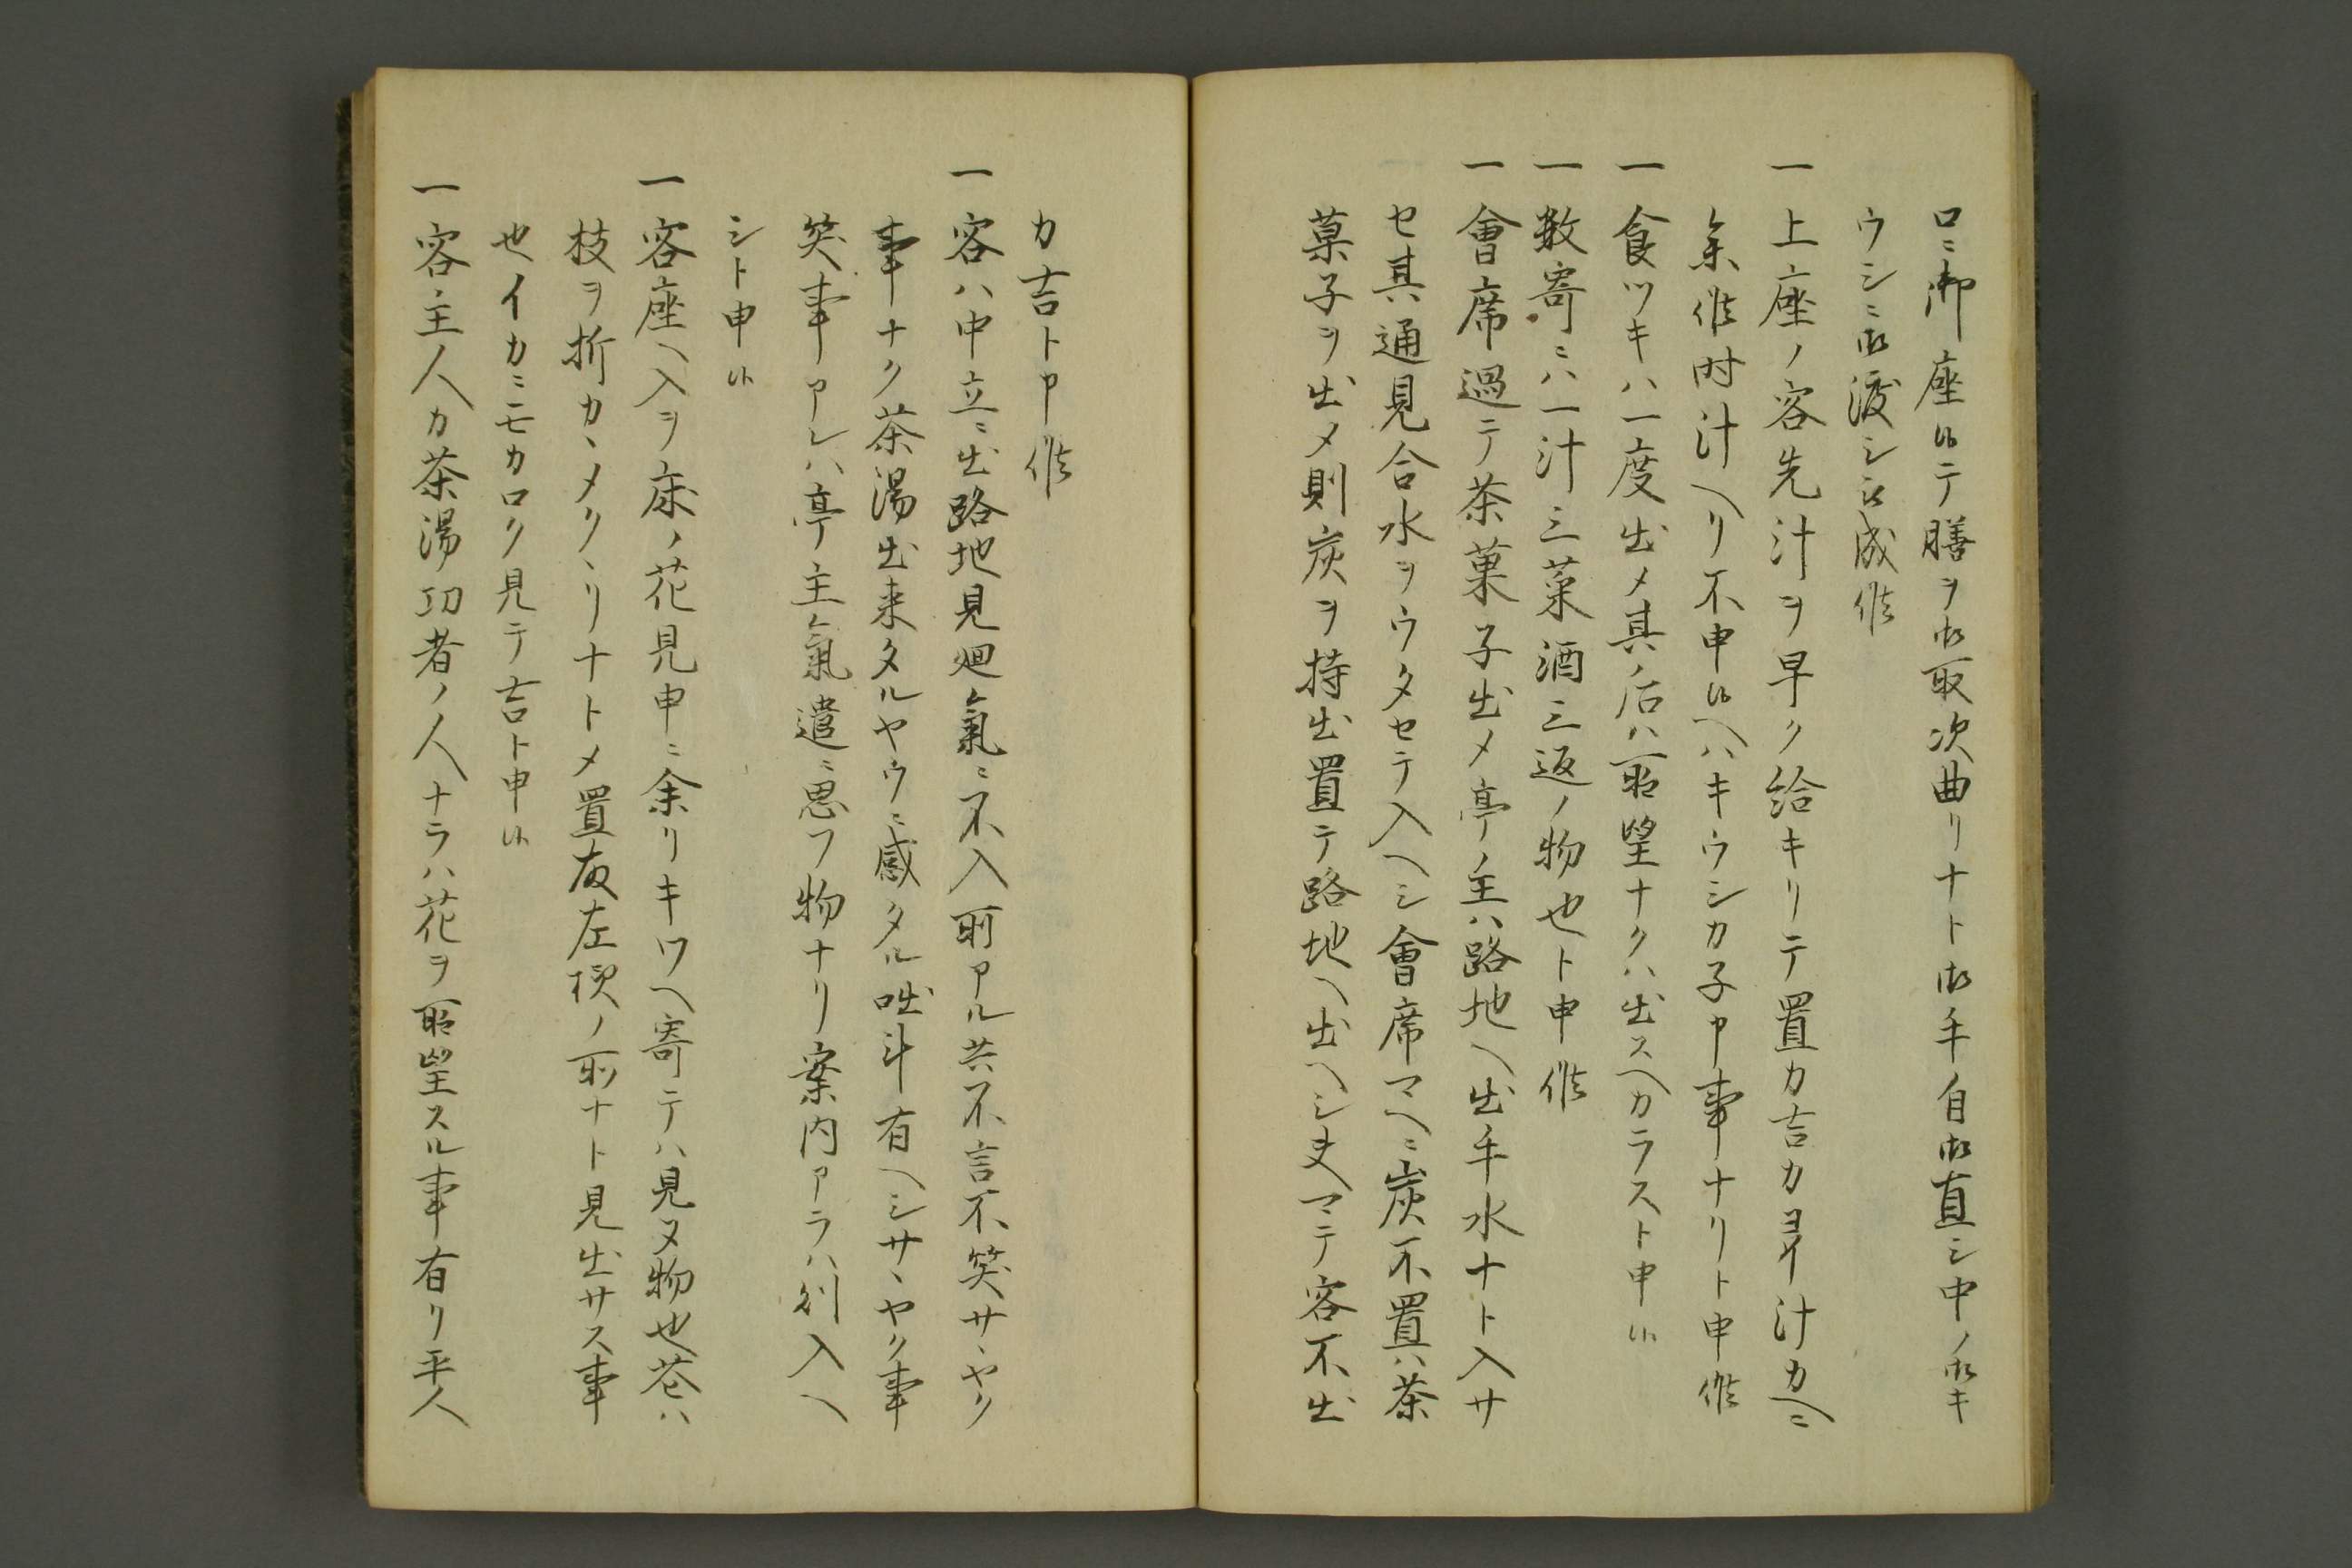 口ニ御座候テ膳ヲ御取次曲リナト御手自御直シ中ノ御キ
ウシニ御渡シ被成候
一上座ノ客先汁ヲ早ク給キリテ置カ吉カヨイ汁カヘニ
参候時汁ヘリ不申候ヘハキウシカ子申事ナリト申候
一食ツキハ一度出メ其ノ后ハ所望ナクハ出スヘカラスト申候
一数寄ニハ一汁三菜酒三返ノ物也ト申候
一會席過テ茶菓子出メ亭ノ主ハ路地ヘ出手水ナト入サ
セ其通見合水ヲウタセテ入ヘシ會席マヘニ炭不置ハ茶
菓子ヲ出メ則炭ヲ持出置テ路地ヘ出ヘシ夫マテ客不出
カ吉ト申候
一客ハ中立ニ出路地見廻氣ニ不入所アル共不言不笑サヽヤク
事ナク茶湯出来タルヤウニ感タル咄斗有ヘシサヽヤク事
笑事アレハ亭主氣遣ニ思フ物ナリ案内アラハ則入ヘ
シト申候
一客座ヘ入ヲ床ノ花見申ニ余リキワヘ寄テハ見ヌ物也花ハ
枝ヲ折カヽメクヽリナトメ置故左様ノ所ナト見出サス事
也イカニモカロク見テ吉ト申候
一客主人カ茶湯功者ノ人ナラハ花ヲ所望スル事有リ平人